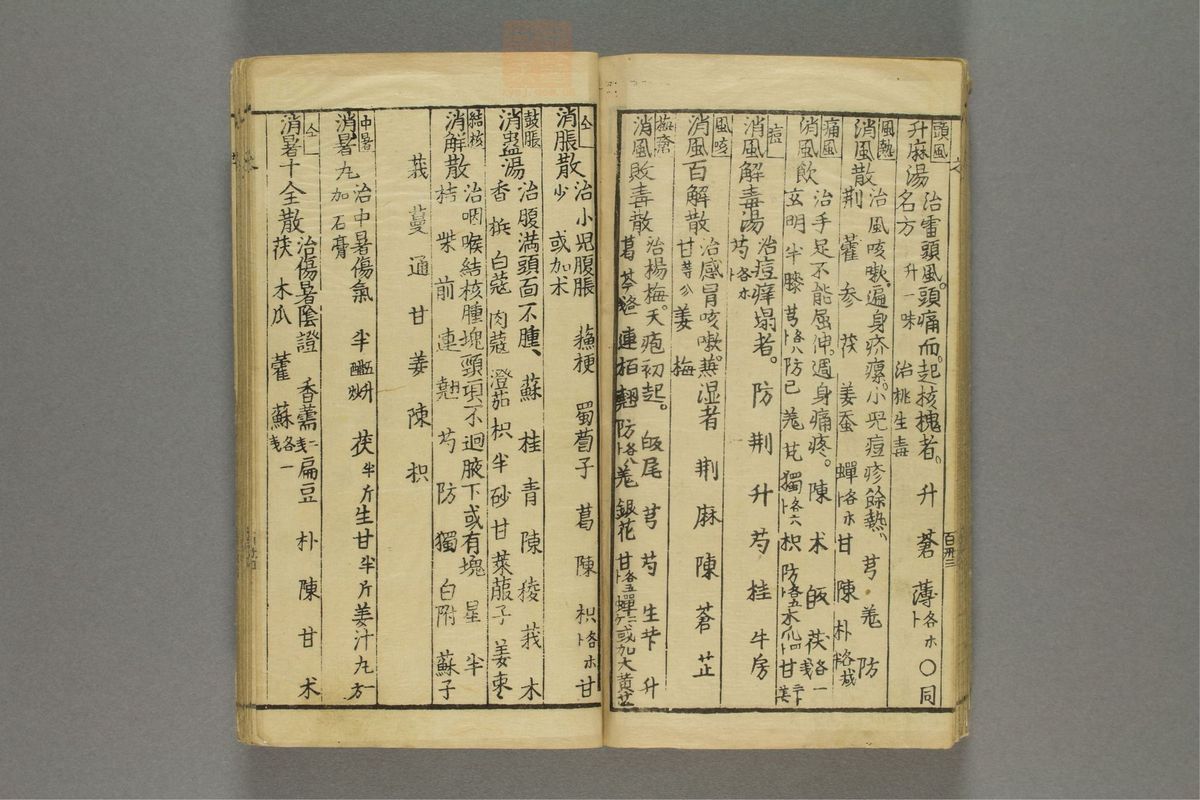 頭風
升麻湯
治雷頭風。頭痛而。起核塊者。升 蒼 薄各木卜 〇同
名方 升一味 治桃生毒
風熱
消風散
治風咳嗽。遍身疥瘰。小児痘疹餘熱。芎 羌 防
荆 藿 参 茯 姜蚕 蟬各木卜 甘 陳 朴
痛風
消風飲
治手足不能屈伸。週身痛疼。陳 木 皈 茯各一戋
玄明 半 膝 芎各八卜 防已 羌 芃 獨各六卜 枳 防各五卜 木瓜四卜 甘
痘
消風解毒湯
治痘痒塌者。防 荆 升 芍 桂 牛房
芍各木卜
風咳
消風百解散
治感冒咳嗽。無湿者 荆 麻 陳 蒼 芷
甘等分 姜 梅
消風敗毒散
治楊梅。天疱初起。皈尾 芎 芍 生芐 升
葛 芩 連 栢 翹 防各八卜 羌 銀花 甘各五卜 蟬 或加大黄
百卅三
仝
消脹散
治小児腹脹 蘓梗 蜀蔔子 葛 陳 枳各木卜 甘
少 或加术
鼓脹
消蠱湯
治腹満頭面不腫、蘇 桂 青 陳 稜 莪 木
香 梹 白蔻 肉蔻 澄茄 枳 半 砂 甘 莱菔子 姜枣
結核
消解散
治咽喉結核腫塊頸項不迴腋下或有塊 星 半
桔 柴 前 連 翹 芍 防 獨 白附 蘇子
莪 蔓 通 甘 姜 陳 枳
中暑
消暑丸
治中暑傷氣 半 茯半斤 生甘半斤 姜汁丸一方
加石膏
仝
消暑十全散
治傷暑陰證 香薷二戋 扁豆 朴 陳 甘 术
茯 木瓜 藿 蘇各一戋